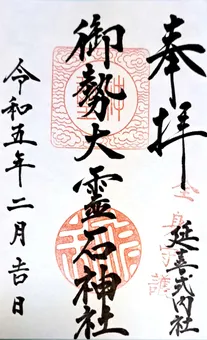 奉拝
延喜式内社
御勢大靈石神社
令和五年二月吉日